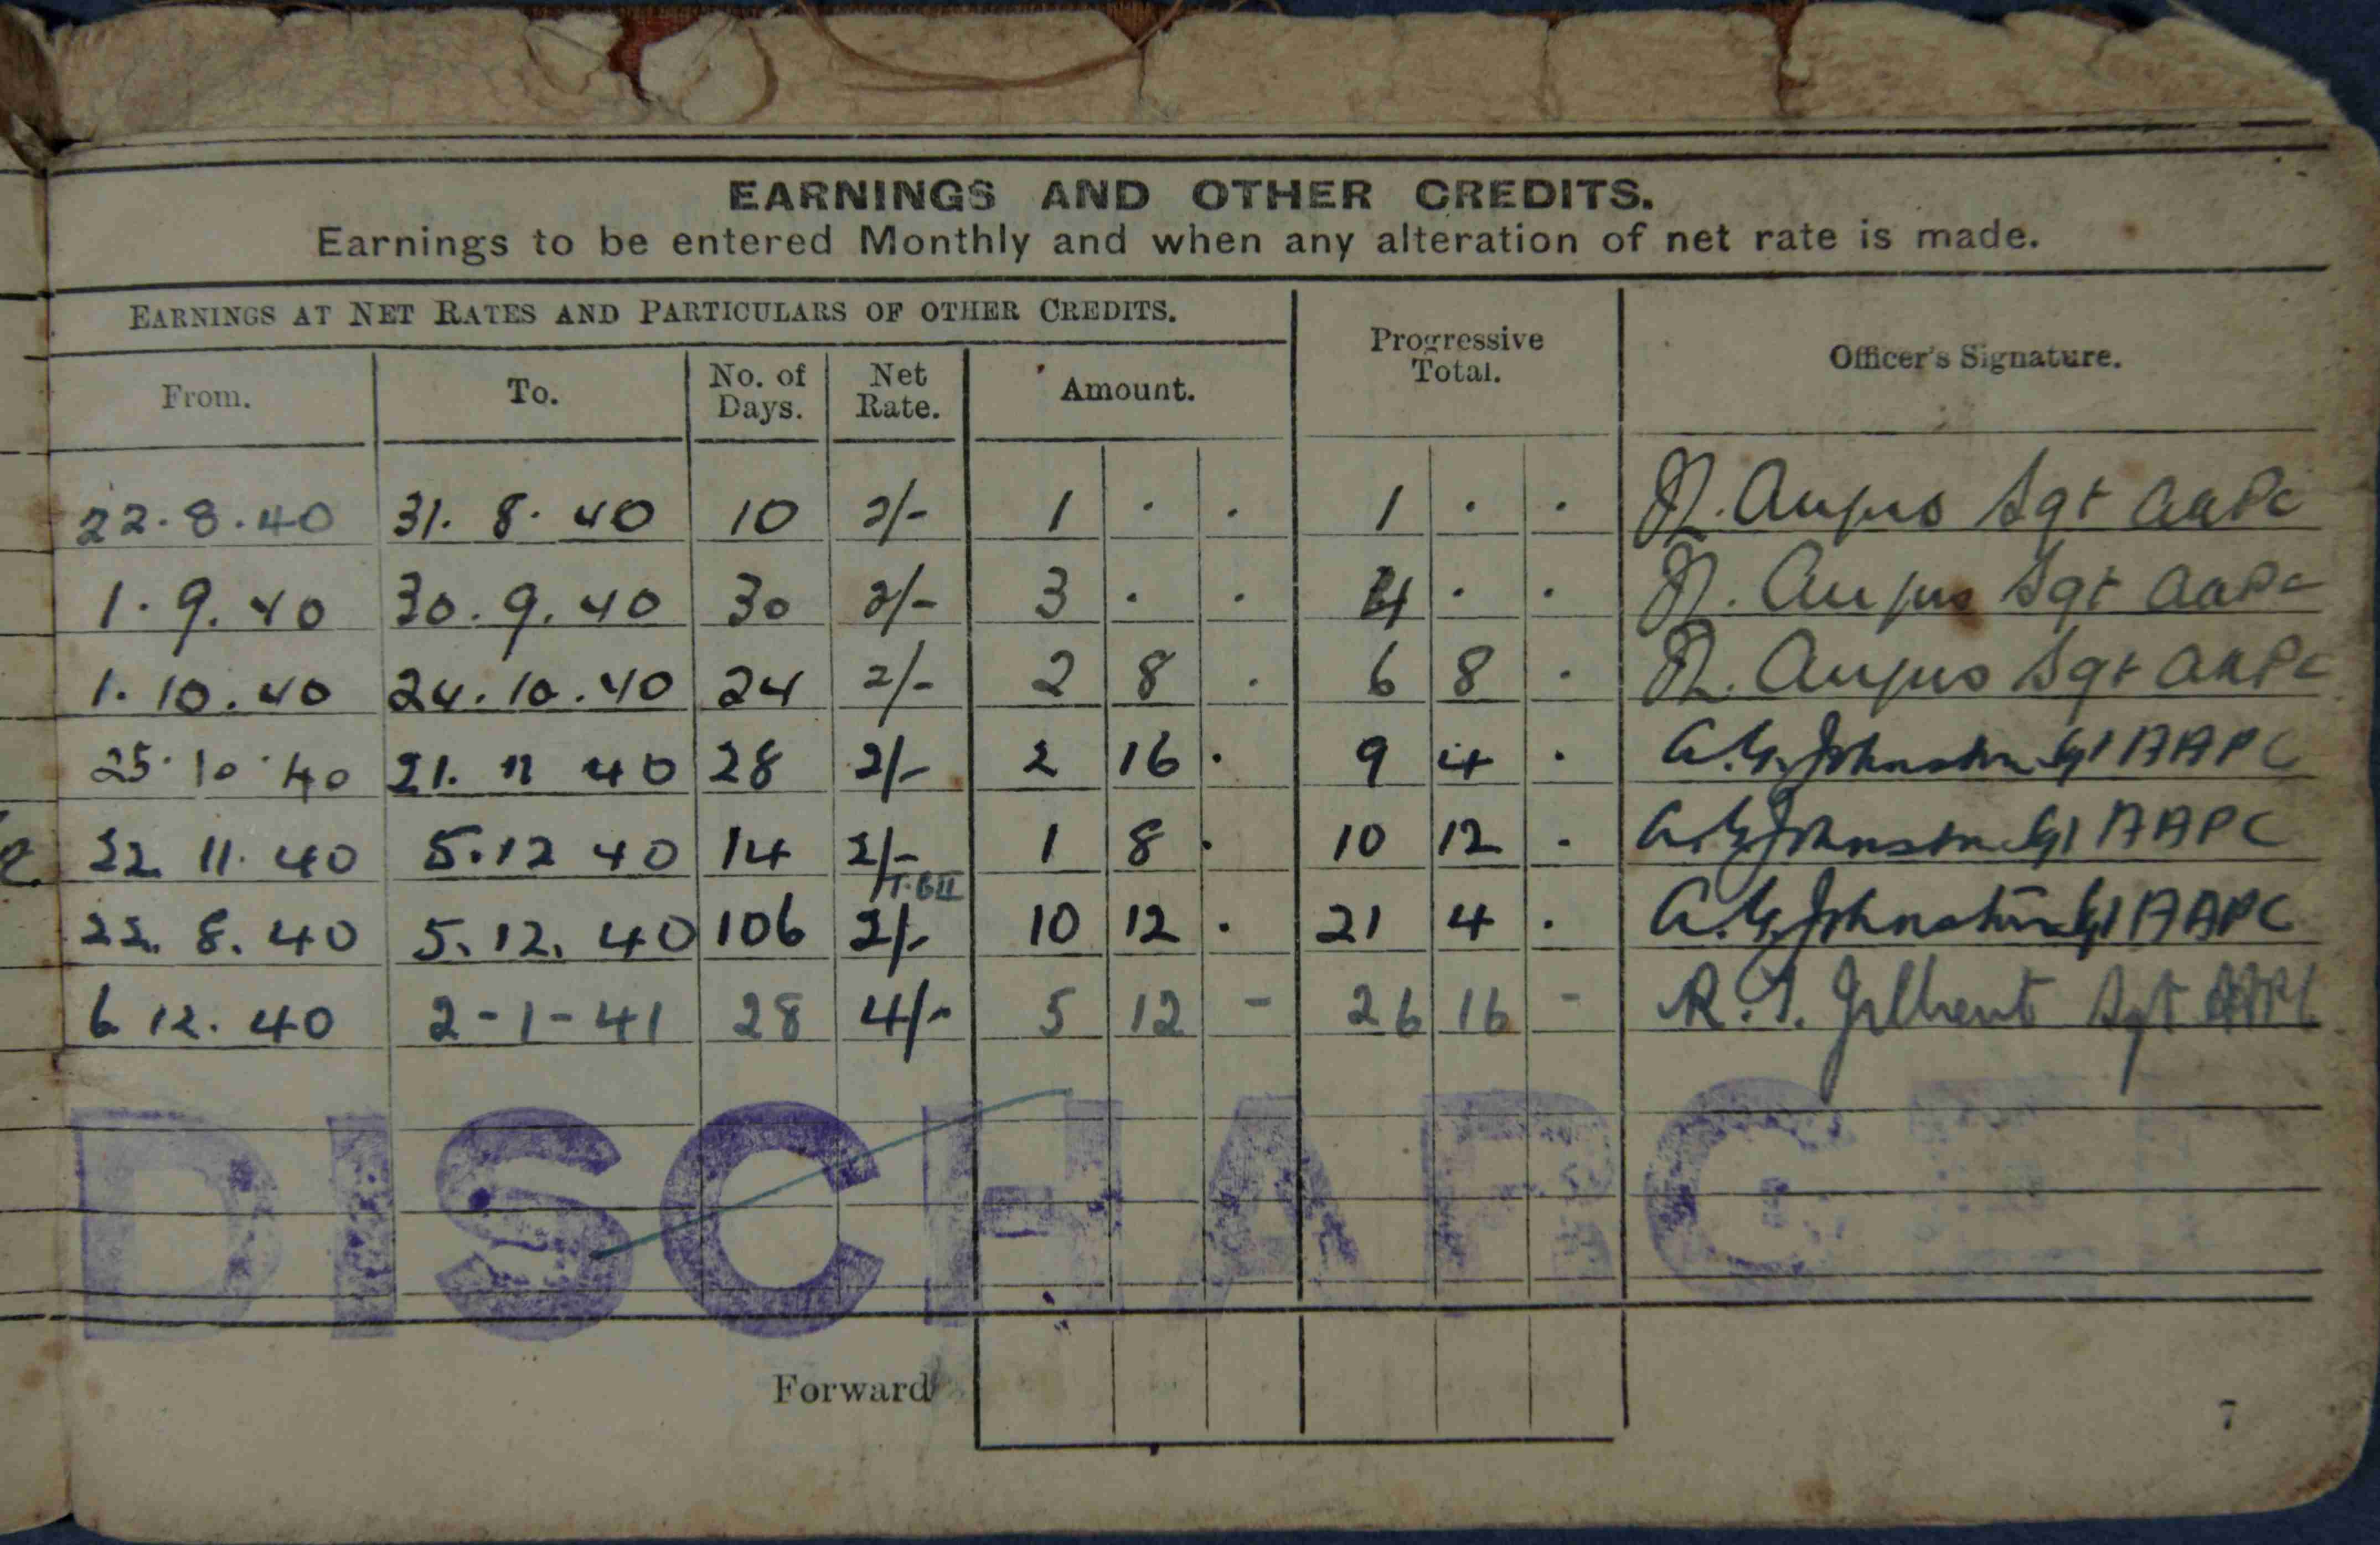 EARNINGS AND OTHER CREDITS.
Earnings to be entered Monthly and when any alteration of net rate is made.
EARNINGS AT NET RATES AND PARTICULARS OF OTHER CREDITS.
Progressive Total.
Officer's Signature.
From. To. No. of Days. Net Rate. Amount.
22.8.40 31.8.40 10 2/- 1 . . 1 . . Angus Sgt AAPC
1.9.40 30.9.40 30 2/- 3 . . 4 . . Angus Sgt AAPC
1.10.40 24.10.40 24 2/- 2 8 . 6 8 . Angus Sgt AAPC
25.10.40 21.11 40 28 2/- 2 16 . 9 4 . Johnston Sgt AAPC
22.11.40 5.12 40 14 2/- 1 8 . 10 12 - Johnston Sgt AAPC
22.8.40 5.12.40 106 2/- 10 12 . 21 4 . Johnston Sgt AAPC
6 12.40 2-1-41 28 4/- 5 12 - 26 16 - R. Gilbert Sgt AAPC
DISCHARGE
Forward
7